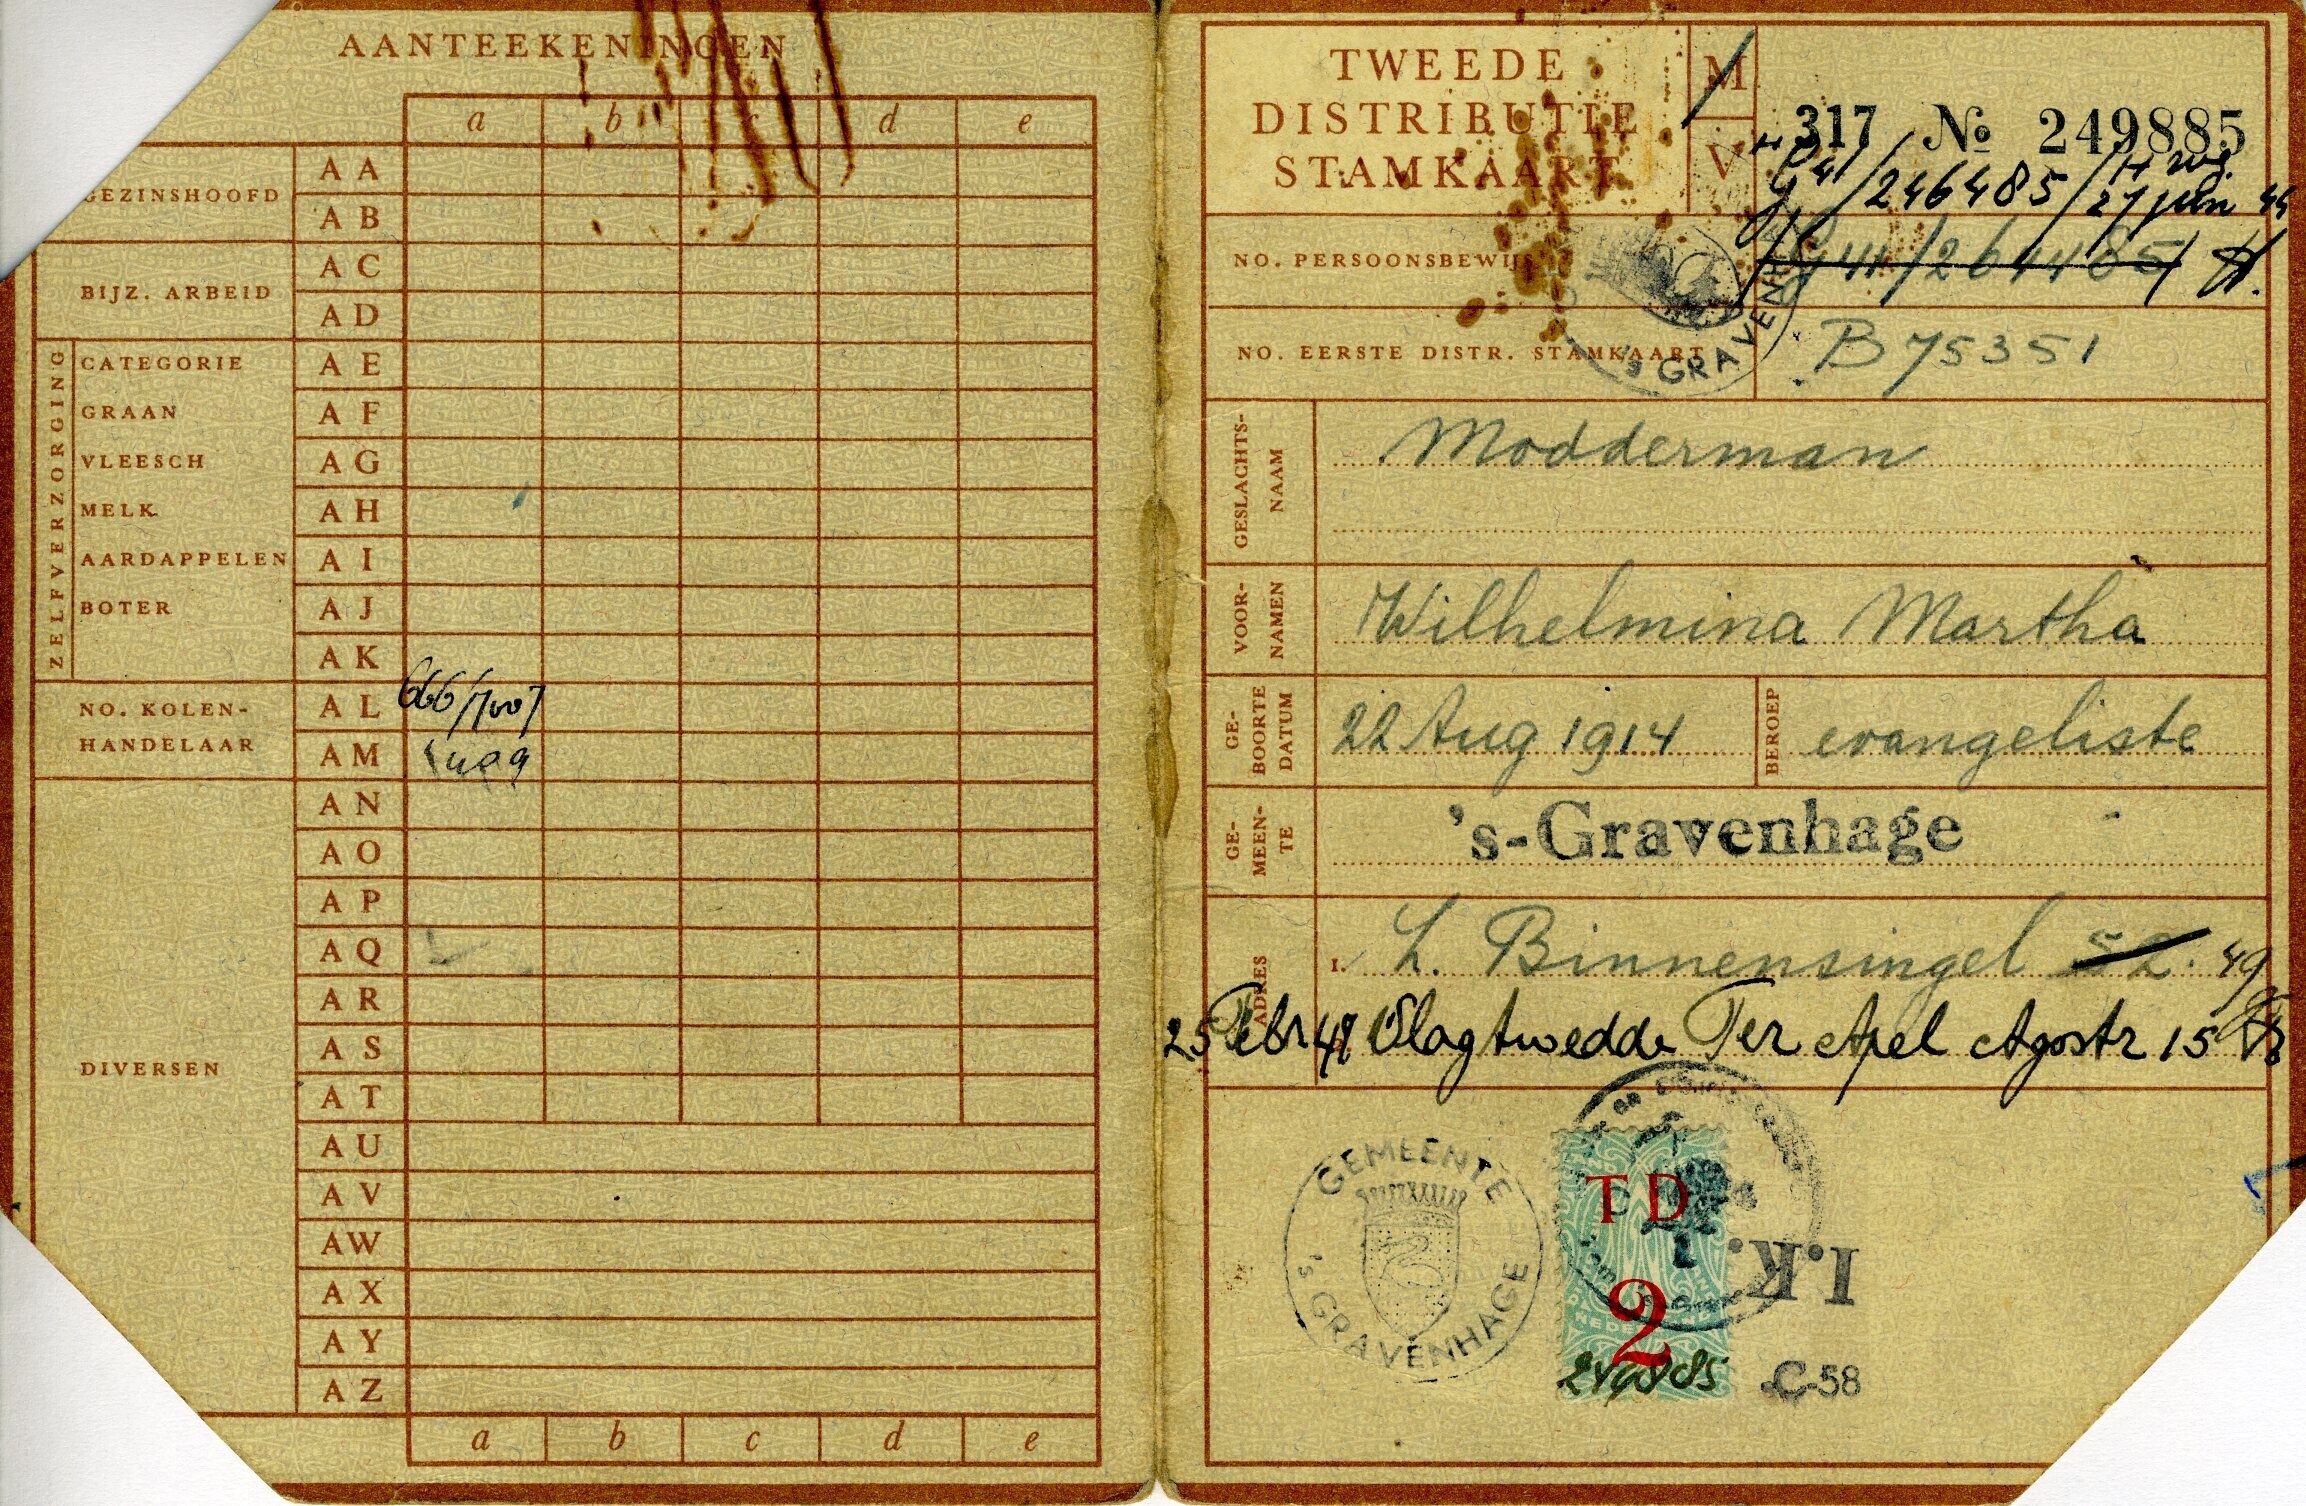 AANTEEKENINGEN
a b c d e
GEZINSHOOFD
A A
A B
BIJZ. ARBEID
A C
A D
ZELFVERZORGING
CATEGORIE A E
GRAAN A F
VLEESCH A G
MELK A H
AARDAPPELEN A I
BOTER A J
A K
NO. KOLEN-
HANDELAAR
A L 666/
A M
DIVERSEN
A N
A O
A P
A Q
A R
A S
A T
A U
A V
A W
A X
A Y
A Z
a b c d e
TWEEDE
DISTRIBUTIE
STAMKAART
M
V
317 No 249885
G 41/246485/
27 juni 44
NO. PERSOONSBEWIJS G 41/264485
'S GRAVENHAGE
NO. EERSTE DISTR. STAMKAART B 75351
GESLACHTS-
NAAM
Modderman
VOOR-
NAMEN
Wilhelmina Martha
GE-
BOORTE
DATUM
22 Aug 1914
BEROEP
evangeliste
GE-
MEEN-
TE
's-Gravenhage
ADRES
1. L. Binnensingel 52. 49
25 Febr 47 Vlagtwedde Ter Apel Agostr 15
GEMEENTE
'S GRAVENHAGE
T D
2
249885
I.K.
C-58